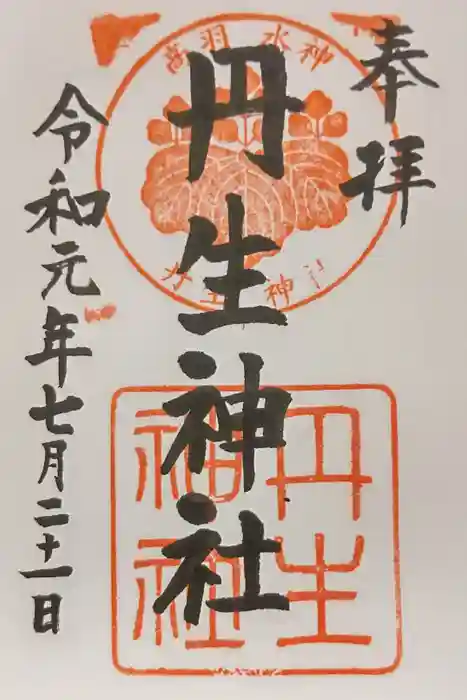 奉拝
高羽 水神
丹生神社
丹生神社
丹生
神社
令和元年七月二十一日